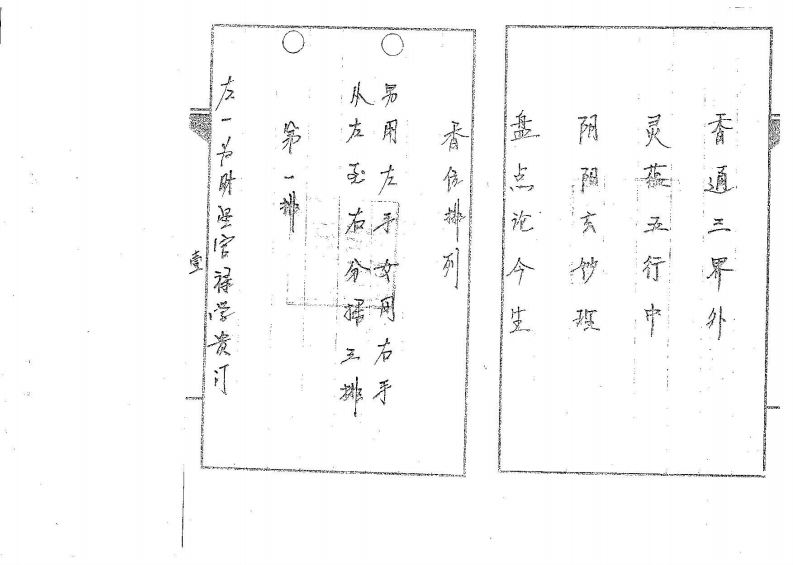 香通三界外
灵蕴五行中
阴阳玄妙理
盘点论今生
香位排列
男用左手女用右手
从左至右分插三排
第一排
左一为财星官禄学贵
壹